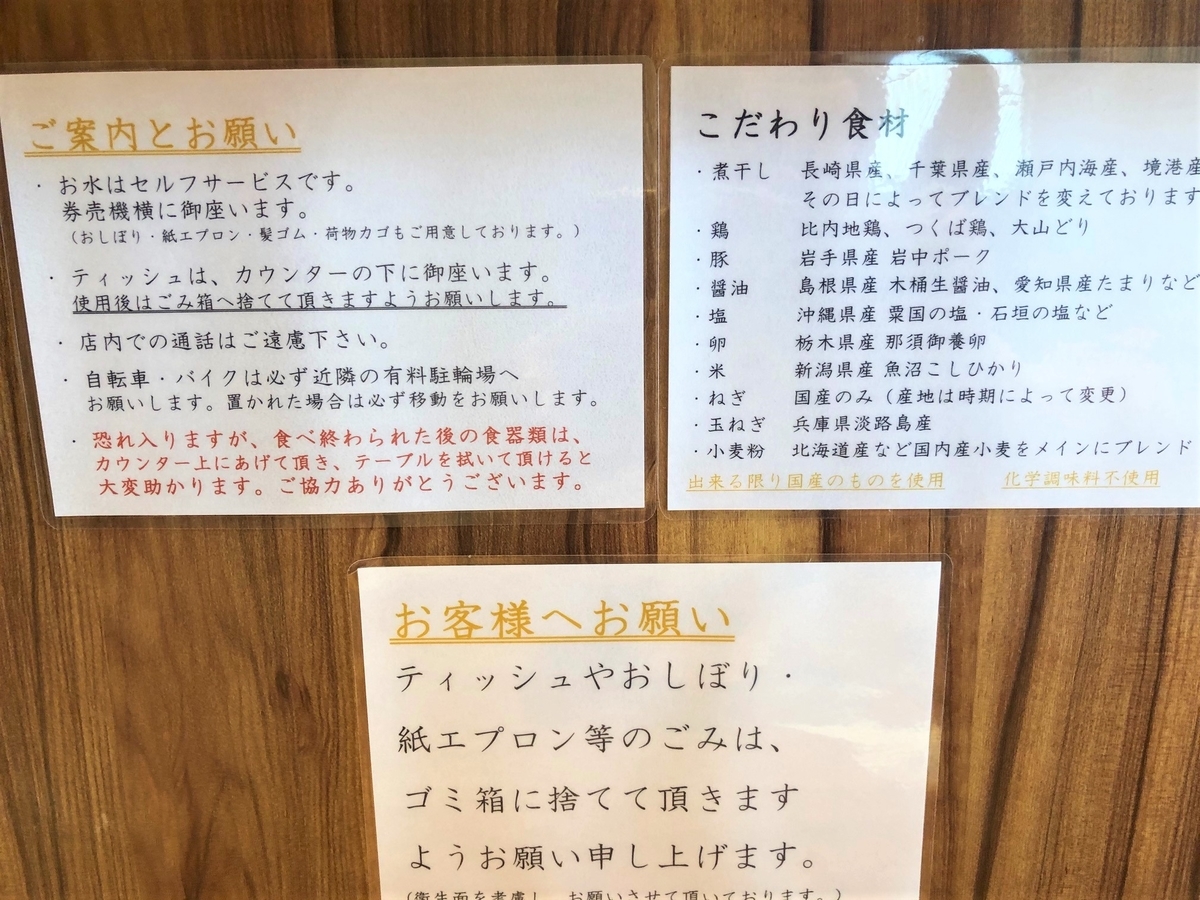 ご案内とお願い
・お水はセルフサービスです。
券売機横に御座います。
（おしぼり・紙エプロン・髪ゴム・荷物カゴもご用意しております。）
・ティッシュは、カウンターの下に御座います。
使用後はごみ箱へ捨てて頂きますようお願いします。
・店内での通話はご遠慮下さい。
・自転車・バイクは必ず近隣の有料駐輪場へ
お願いします。置かれた場合は必ず移動をお願いします。
・恐れ入りますが、食べ終わられた後の食器類は、
カウンター上にあげて頂き、テーブルを拭いて頂けると
大変助かります。ご協力ありがとうございます。
こだわり食材
・煮干し 長崎県産、千葉県産、瀬戸内海産、境港産
その日によってブレンドを変えております
・鶏 比内地鶏、つくば鶏、大山どり
・豚 岩手県産 岩中ポーク
・醤油 島根県産 木桶生醤油、愛知県産たまりなど
・塩 沖縄県産 粟国の塩・石垣の塩など
・卵 栃木県産 那須御養卵
・米 新潟県産 魚沼こしひかり
・ねぎ 国産のみ（産地は時期によって変更）
・玉ねぎ 兵庫県淡路島産
・小麦粉 北海道産など国内産小麦をメインにブレンド
出来る限り国産のものを使用 化学調味料不使用
お客様へお願い
ティッシュやおしぼり・
紙エプロン等のごみは、
ゴミ箱に捨てて頂きます
ようお願い申し上げます。
（衛生面を考慮し、お願いさせて頂いております。）